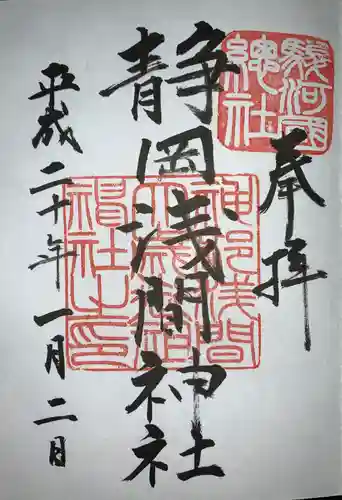 駿河國
總社
奉拝
静岡浅間神社
神部浅間
大歳御祖
神社之印
平成二十年一月二日